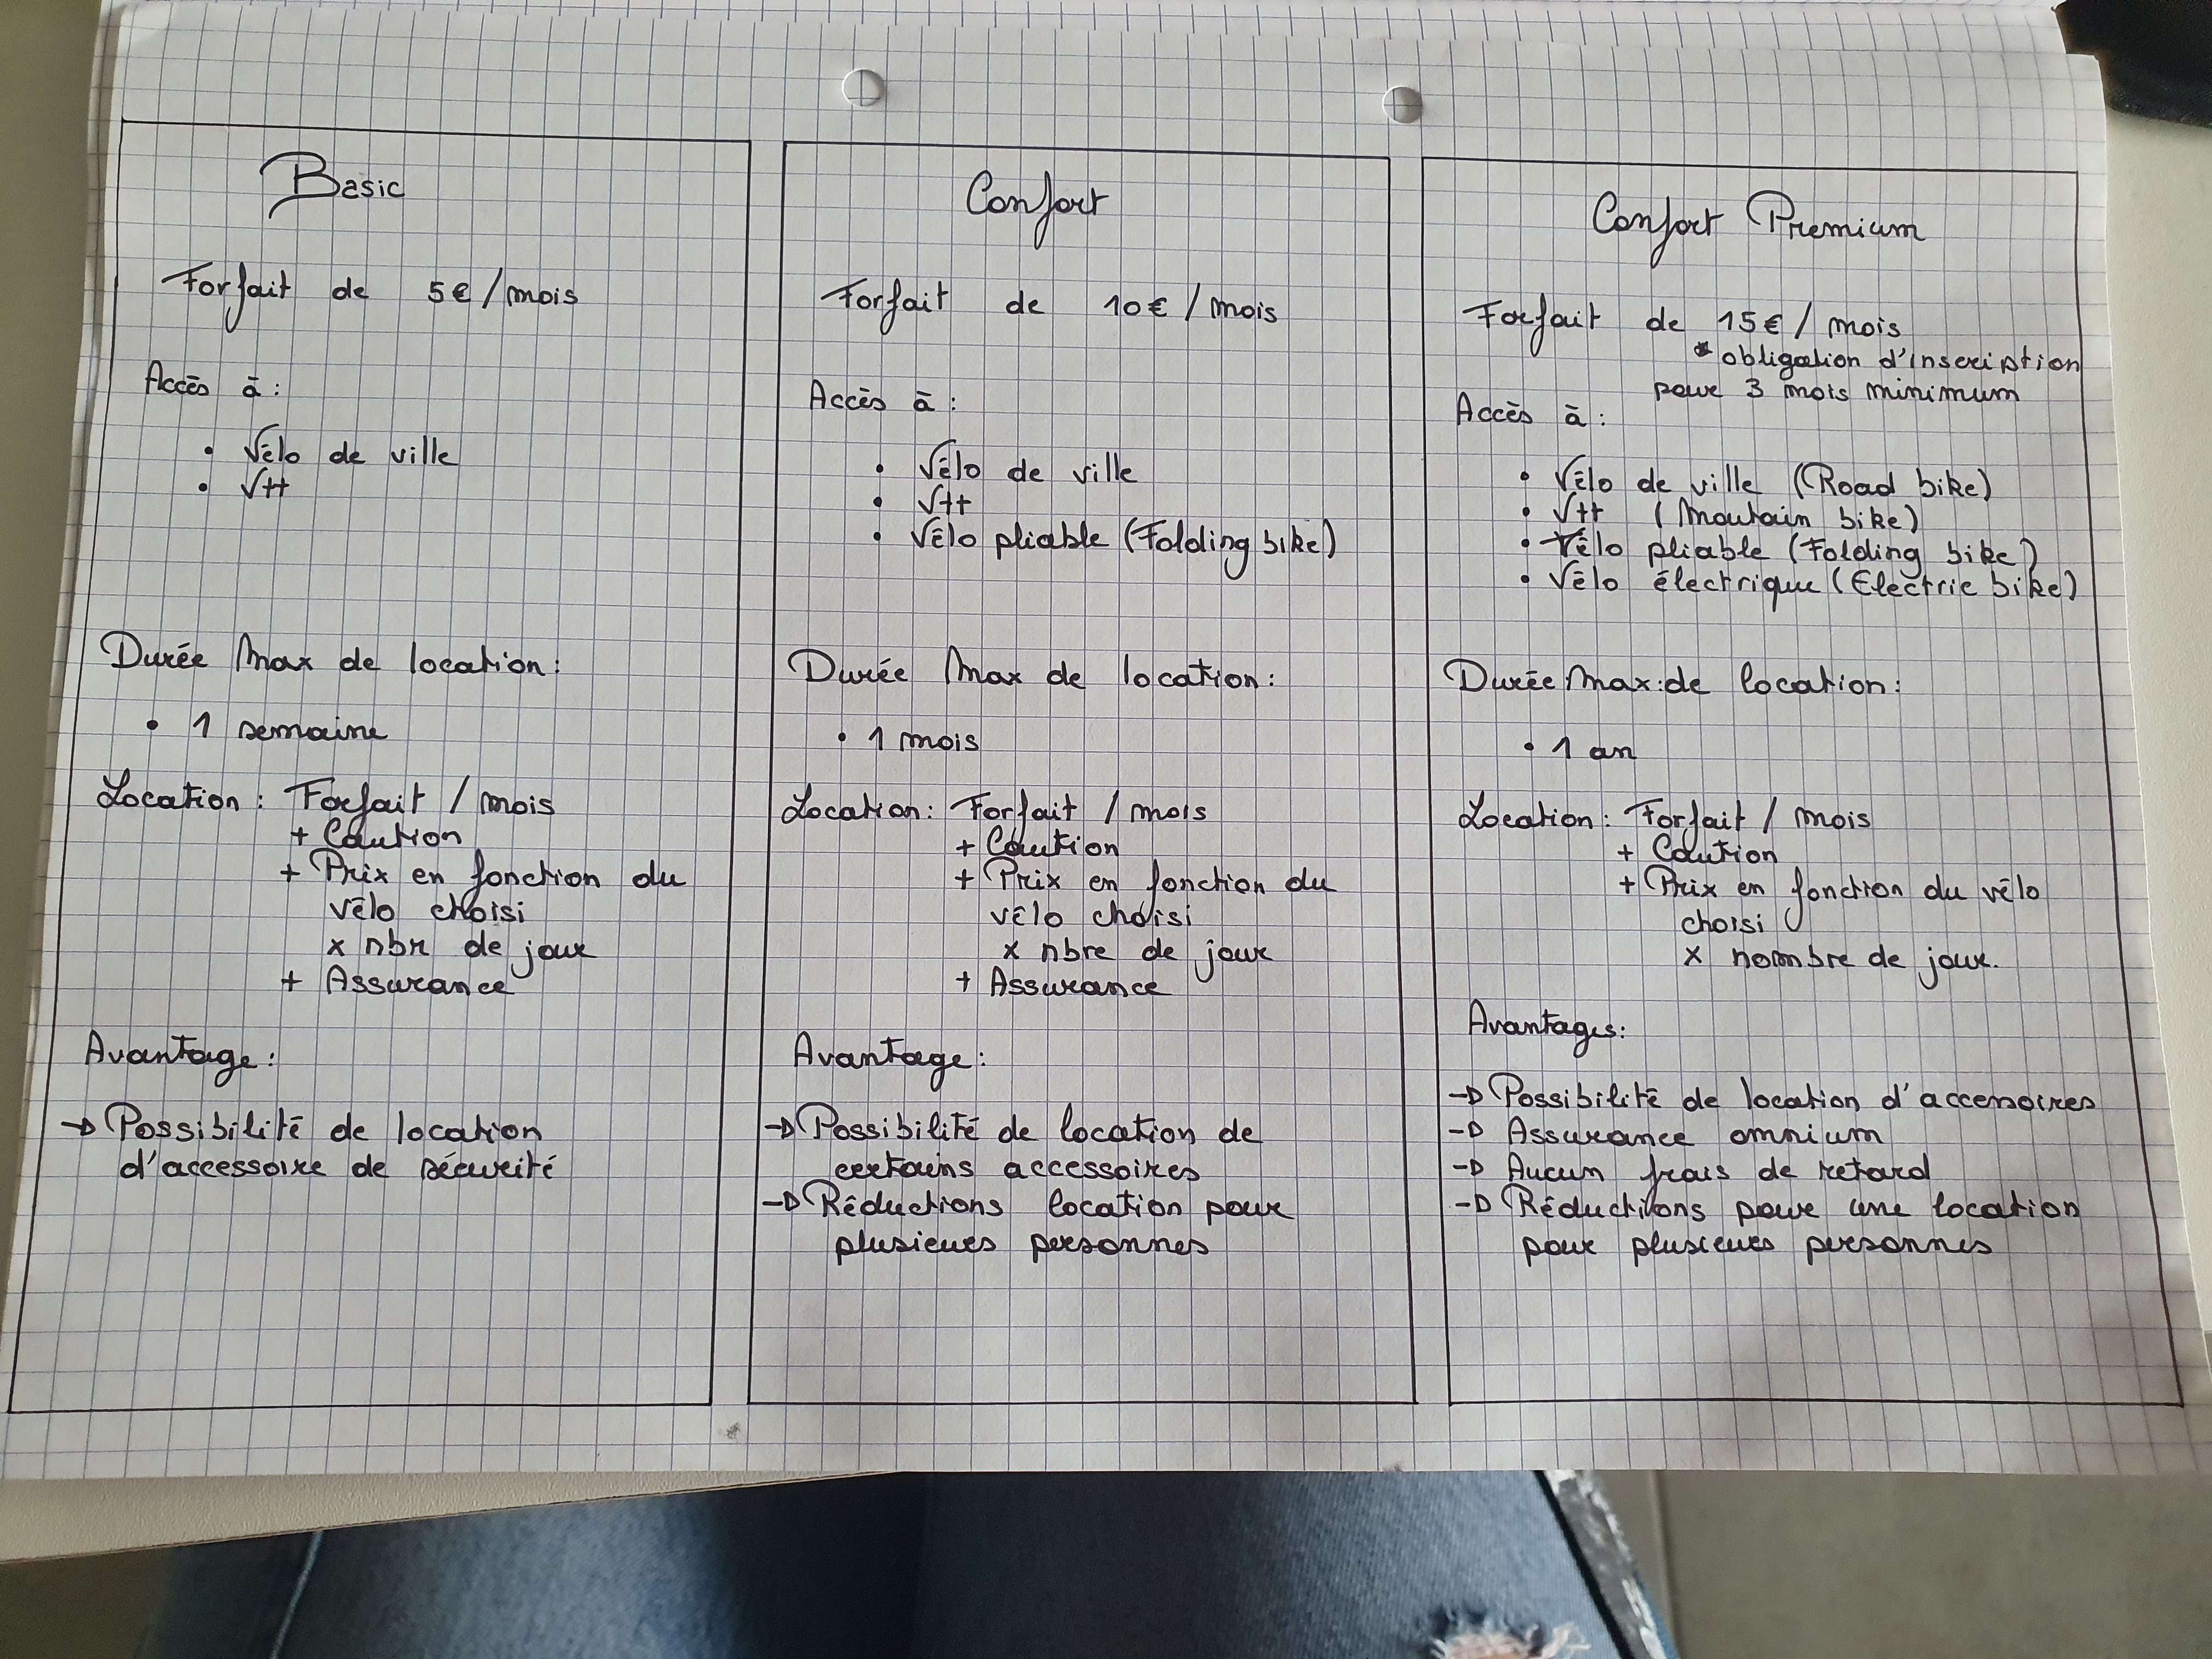 Basic
Forfait de 5€/mois
Accès à :
• Vélo de ville
• Vtt
Durée Max de location :
• 1 semaine
Location : Forfait / mois
+ Caution
+ Prix en fonction du
vélo choisi
x nbr de jour
+ Assurance
Avantage :
→ Possibilité de location
d'accessoire de sécurité
Confort
Forfait de 10€ / mois
Accès à :
• Vélo de ville
• Vtt
• Vélo pliable (Folding bike)
Durée Max de location :
• 1 mois
Location : Forfait / mois
+ Caution
+ Prix en fonction du
vélo choisi
x nbre de jour
+ Assurance
Avantage :
→ Possibilité de location de
certains accessoires
→ Réductions location pour
plusieurs personnes
Confort Premium
Forfait de 15€ / mois
* obligation d'inscription
pour 3 mois minimum
Accès à :
• Vélo de ville (Road bike)
• Vtt (Moutain bike)
• Vélo pliable (Folding bike)
• Vélo électrique (Electric bike)
Durée Max : de location :
• 1 an
Location : Forfait / mois
+ Caution
+ Prix en fonction du vélo
choisi
x nombre de jour.
Avantages :
→ Possibilité de location d'accessoires
→ Assurance omnium
→ Aucun frais de retard
→ Réductions pour une location
pour plusieurs personnes